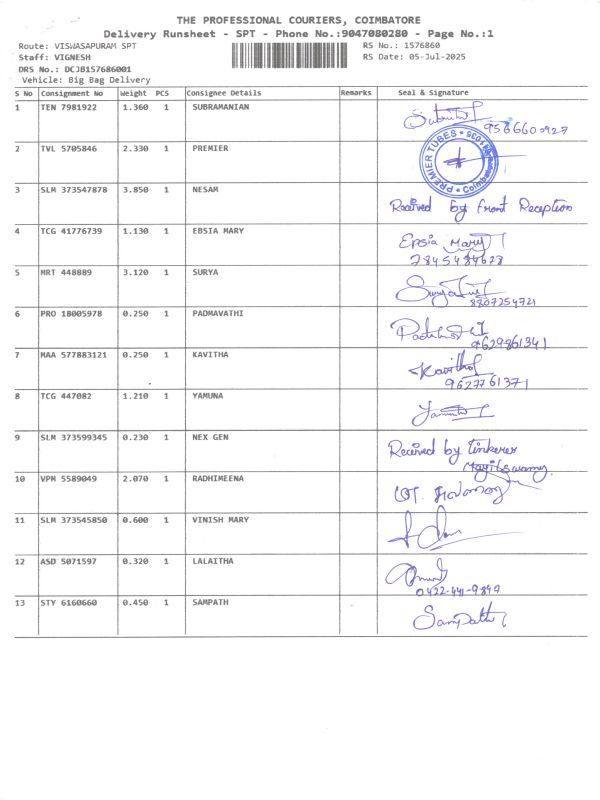 THE PROFESSIONAL COURIERS, COIMBATORE
Delivery Runsheet - SPT - Phone No.:9047080280 - Page No.:1
Route: VISWASAPURAM SPT
RS No.: 1576860
Staff: VIGNESH
RS Date: 05-Jul-2025
DRS No.: DCJB157686001
Vehicle: Big Bag Delivery
S No Consignment No Weight PCS Consignee Details Remarks Seal & Signature
1 TEN 7981922 1.360 1 SUBRAMANIAN
9566600927
2 TVL 5705846 2.330 1 PREMIER
PREMIER TUBES * Coimbatore
3 SLM 373547878 3.850 1 NESAM
Received by front Reception
4 TCG 41776739 1.130 1 EBSIA MARY Epsia Mary
7845484628
5 MRT 448889 3.120 1 SURYA Surya
8807254721
6 PRO 18005978 0.250 1 PADMAVATHI
9629861341
7 MAA 577883121 0.250 1 KAVITHA Kavitha
9627761371
8 TCG 447082 1.210 1 YAMUNA
9 SLM 373599345 0.230 1 NEX GEN Received by Tinkerer
10 VPM 5589049 2.070 1 RADHIMEENA
11 SLM 373545850 0.600 1 VINISH MARY
12 ASD 5071597 0.320 1 LALAITHA
0422-441-9849
13 STY 6160660 0.450 1 SAMPATH Sampath